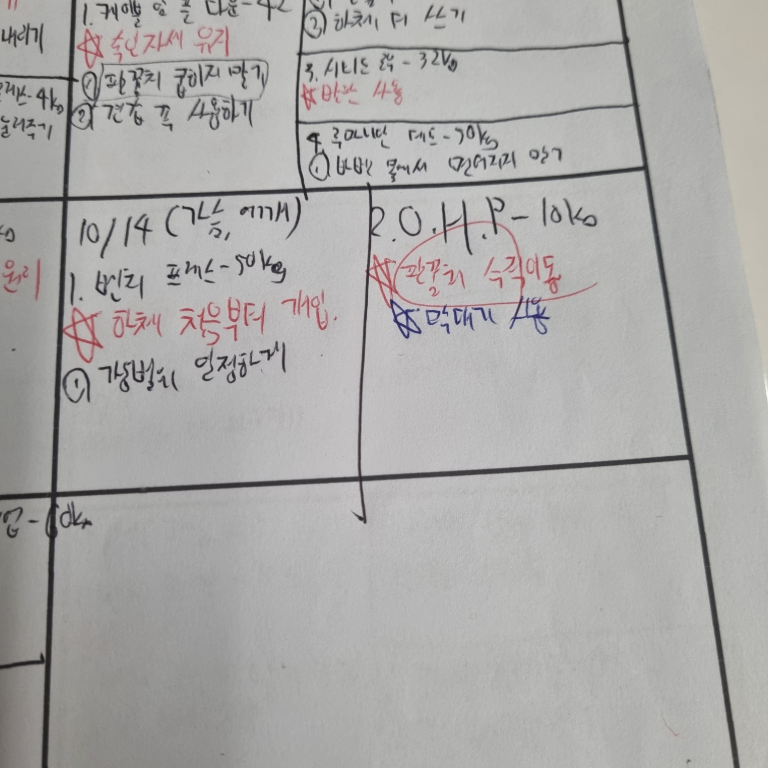 내리기
-4kg
눌러주기
1. 케이블 암 풀 다운-42
☆ 숙인자세 유지
① 팔꿈치 굽히지 말기
② 견갑 꼭 사용하기
② 하체 더 쓰기
3. 시티드 로우 - 32kg
☆ 반원 사용
4. 루마니안 데드-50kg
① 바벨 몸에서 떨어지지 않기
원리
10/14 (가슴, 어깨)
1. 벤치 프레스-50kg
☆ 하체 처음부터 개입
① 가동범위 일정하게
2. O.H.P-10kg
☆ 팔꿈치 수직이동
☆ 막대기 사용
업-60kg